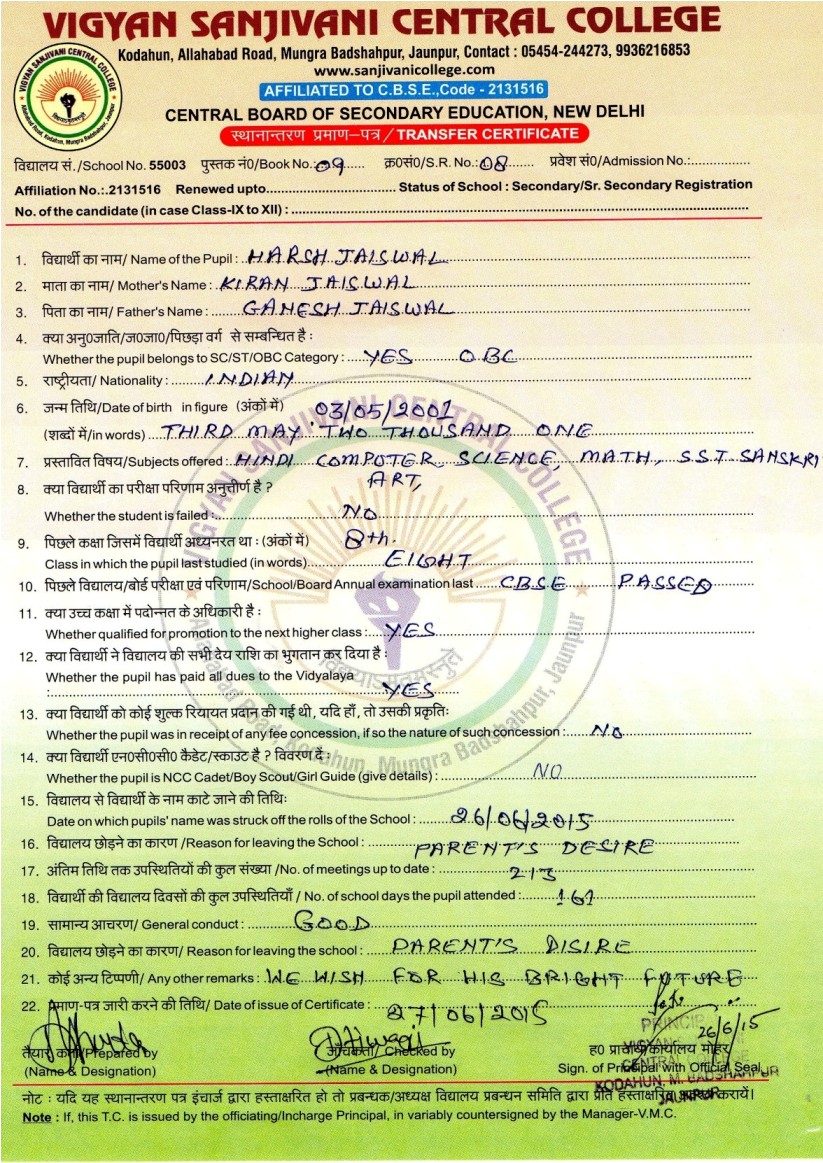 VIGYAN SANJIVANI CENTRAL COLLEGE
Kodahun, Allahabad Road, Mungra Badshahpur, Jaunpur, Contact : 05454-244273, 9936216853
www.sanjivanicollege.com
AFFILIATED TO C.B.S.E.,Code - 2131516
CENTRAL BOARD OF SECONDARY EDUCATION, NEW DELHI
स्थानान्तरण प्रमाण–पत्र / TRANSFER CERTIFICATE
विद्यालय सं./School No. 55003 पुस्तक नं0/Book No.: 09 क्र0सं0/S.R. No.: 08 प्रवेश सं0/Admission No.:
Affiliation No.:.2131516 Renewed upto Status of School : Secondary/Sr. Secondary Registration
No. of the candidate (in case Class-IX to XII) :
1. विद्यार्थी का नाम/ Name of the Pupil : HARSH JAISWAL
2. माता का नाम/ Mother's Name : KIRAN JAISWAL
3. पिता का नाम/ Father's Name : GANESH JAISWAL
4. क्या अनु0जाति/ज0जा0/पिछड़ा वर्ग से सम्बन्धित है :
Whether the pupil belongs to SC/ST/OBC Category : YES OBC
5. राष्ट्रीयता/ Nationality : INDIAN
6. जन्म तिथि/Date of birth in figure (अंकों में) 03/05/2001
(शब्दों में/in words) THIRD MAY TWO THOUSAND ONE
7. प्रस्तावित विषय/Subjects offered : HINDI COMPUTER SCIENCE, MATH, S.S.T SANSKRI
ART,
8. क्या विद्यार्थी का परीक्षा परिणाम अनुत्तीर्ण है ?
Whether the student is failed : NO
9. पिछले कक्षा जिसमें विद्यार्थी अध्यनरत था : (अंकों में) 8th.
Class in which the pupil last studied (in words) EIGHT
10. पिछले विद्यालय/बोर्ड परीक्षा एवं परिणाम/School/Board Annual examination last CBSE PASSED
11. क्या उच्च कक्षा में पदोन्नत के अधिकारी है :
Whether qualified for promotion to the next higher class : YES
12. क्या विद्यार्थी ने विद्यालय की सभी देय राशि का भुगतान कर दिया है :
Whether the pupil has paid all dues to the Vidyalaya
: YES
13. क्या विद्यार्थी को कोई शुल्क रियायत प्रदान की गई थी, यदि हाँ, तो उसकी प्रकृतिः
Whether the pupil was in receipt of any fee concession, if so the nature of such concession : NO
14. क्या विद्यार्थी एन0सी0सी0 कैडेट/स्काउट है ? विवरण दें :
Whether the pupil is NCC Cadet/Boy Scout/Girl Guide (give details) : NO
15. विद्यालय से विद्यार्थी के नाम काटे जाने की तिथिः
Date on which pupils' name was struck off the rolls of the School : 26/06/2015
16. विद्यालय छोड़ने का कारण /Reason for leaving the School : PARENT'S DESIRE
17. अंतिम तिथि तक उपस्थितियों की कुल संख्या /No. of meetings up to date : 213
18. विद्यार्थी की विद्यालय दिवसों की कुल उपस्थितियाँ / No. of school days the pupil attended : 161
19. सामान्य आचरण/ General conduct : GOOD
20. विद्यालय छोड़ने का कारण/ Reason for leaving the school : PARENT'S DISIRE
21. कोई अन्य टिप्पणी/ Any other remarks : WE WISH FOR HIS BRIGHT FUTURE
22. प्रमाण-पत्र जारी करने की तिथि/ Date of issue of Certificate : 27/06/2015
26/6/15
तैयार कर्ता/Prepared by जाँचकर्ता/ Checked by ह0 प्राचार्य/कार्यालय मोहर
(Name & Designation) (Name & Designation) Sign. of Principal with Official Seal
KODAHUN, M. BADSHAHPUR
JAUNPUR
नोट : यदि यह स्थानान्तरण पत्र इंचार्ज द्वारा हस्ताक्षरित हो तो प्रबन्धक/अध्यक्ष विद्यालय प्रबन्धन समिति द्वारा प्रति हस्ताक्षरित करायें।
Note : If, this T.C. is issued by the officiating/Incharge Principal, in variably countersigned by the Manager-V.M.C.